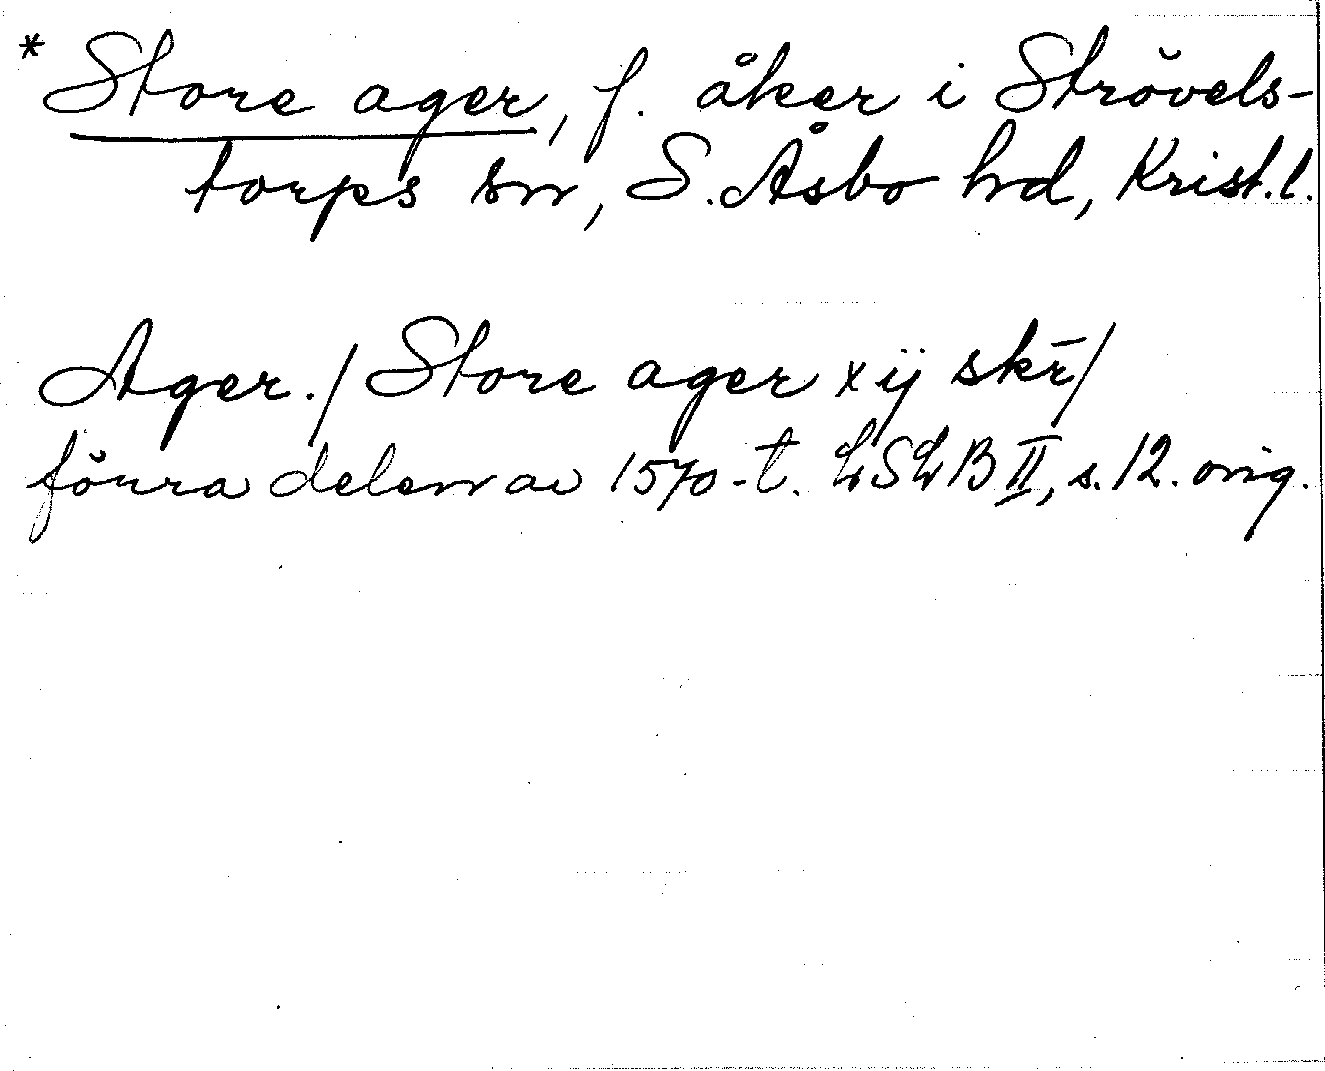 * Store ager, f. åker i Strövels-
torps sn, S. Åsbo hd, Krist. l.
Ager. / Store ager xij skr̄ /
förra delen av 1570-t. LSLB II, s. 12. orig.